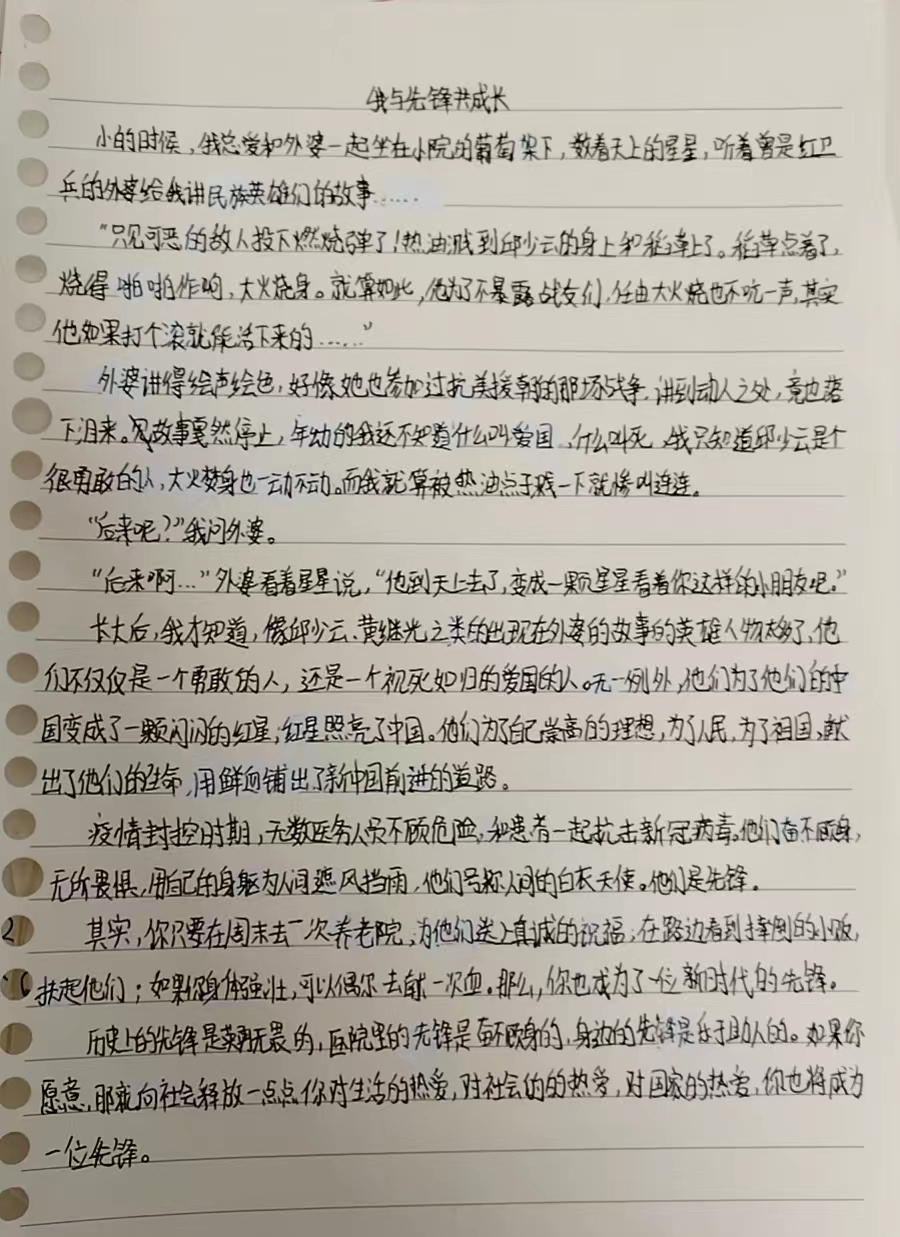 我与先锋共成长
小的时候，我总爱和外婆一起坐在小院的葡萄架下，数着天上的星星，听着曾是红卫
兵的外婆给我讲民族英雄们的故事……
“只见可恶的敌人投下燃烧弹了！热油溅到邱少云的身上和稻草上了。稻草点着了，
烧得啪啪作响，大火烧身。就算如此，他为了不暴露战友们，任由大火烧也不吭一声，其实
他如果打个滚就能活下来的……”
外婆讲得绘声绘色，好像她也参加过抗美援朝的那场战争，讲到动人之处，竟也落
下泪来。故事戛然停止，年幼的我还不知道什么叫爱国，什么叫死，我只知道邱少云是个
很勇敢的人，大火焚身也一动不动。而我就算被热油点子溅一下就惨叫连连。
“后来呢？”我问外婆。
“后来啊…”外婆看着星星说，“他到天上去了，变成一颗星星看着你这样的小朋友吧。”
长大后，我才知道，像邱少云、黄继光之类的出现在外婆的故事的英雄人物太多了，他
们不仅仅是一个勇敢的人，还是一个视死如归的爱国的人。无一例外，他们为了他们的中
国变成了一颗闪闪的红星，红星照亮了中国。他们为了自己崇高的理想，为了人民，为了祖国，献
出了他们的生命，用鲜血铺出了新中国前进的道路。
疫情封控时期，无数医务人员不顾危险，和患者一起抗击新冠病毒。他们奋不顾身，
无所畏惧，用自己的身躯为人间遮风挡雨，他们号称人间的白衣天使。他们是先锋。
其实，你只要在周末去一次养老院，为他们送上真诚的祝福；在路边看到摔倒的小贩，
扶起他们；如果你身体强壮，可以偶尔去献一次血。那么，你也成为了一位新时代的先锋。
历史上的先锋是英勇无畏的，医院里的先锋是奋不顾身的，身边的先锋是乐于助人的。如果你
愿意，那就向社会释放一点点你对生活的热爱，对社会的的热爱，对国家的热爱，你也将成为
一位先锋。